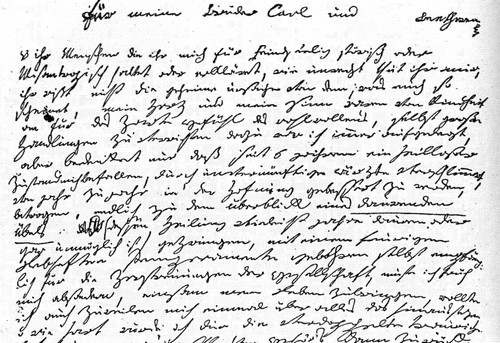 Für meine Brüder Carl und Beethowen
O ihr Menschen die ihr mich für Feindseelig störisch oder
Misantropisch haltet oder erkläret, wie unrecht thut ihr mir,
ihr wißt nicht die geheime urßache von dem, was euch so
scheinet, mein Herz und mein Sinn waren von Kindheit
an für das Zarte gefühl des wohlwollens, selbst große
Handlungen zu verrichten dazu war ich immer aufgelegt,
aber bedenket nur daß seit 6 jahren ein heilloser
Zustand mich befallen, durch unvernünftige ärzte verschlimmert,
von jahr zu jahr in der Hofnung gebessert zu werden,
betrogen, endlich zu dem überblick eines daurenden
Übels dessen Heilung vieleicht jahre dauren oder
gar unmöglich ist gezwungen, mit einem feurigen
Lebhaften Temperamente gebohren selbst empfäng-
lich für die Zerstreuungen der Gesellschaft, muste ich früh
mich absondern, einsam mein Leben zubringen, wollte
ich auch zuweilen mich einmal über alles das hinaussezen,
o wie hart wurde ich durch die verdoppelte traurige